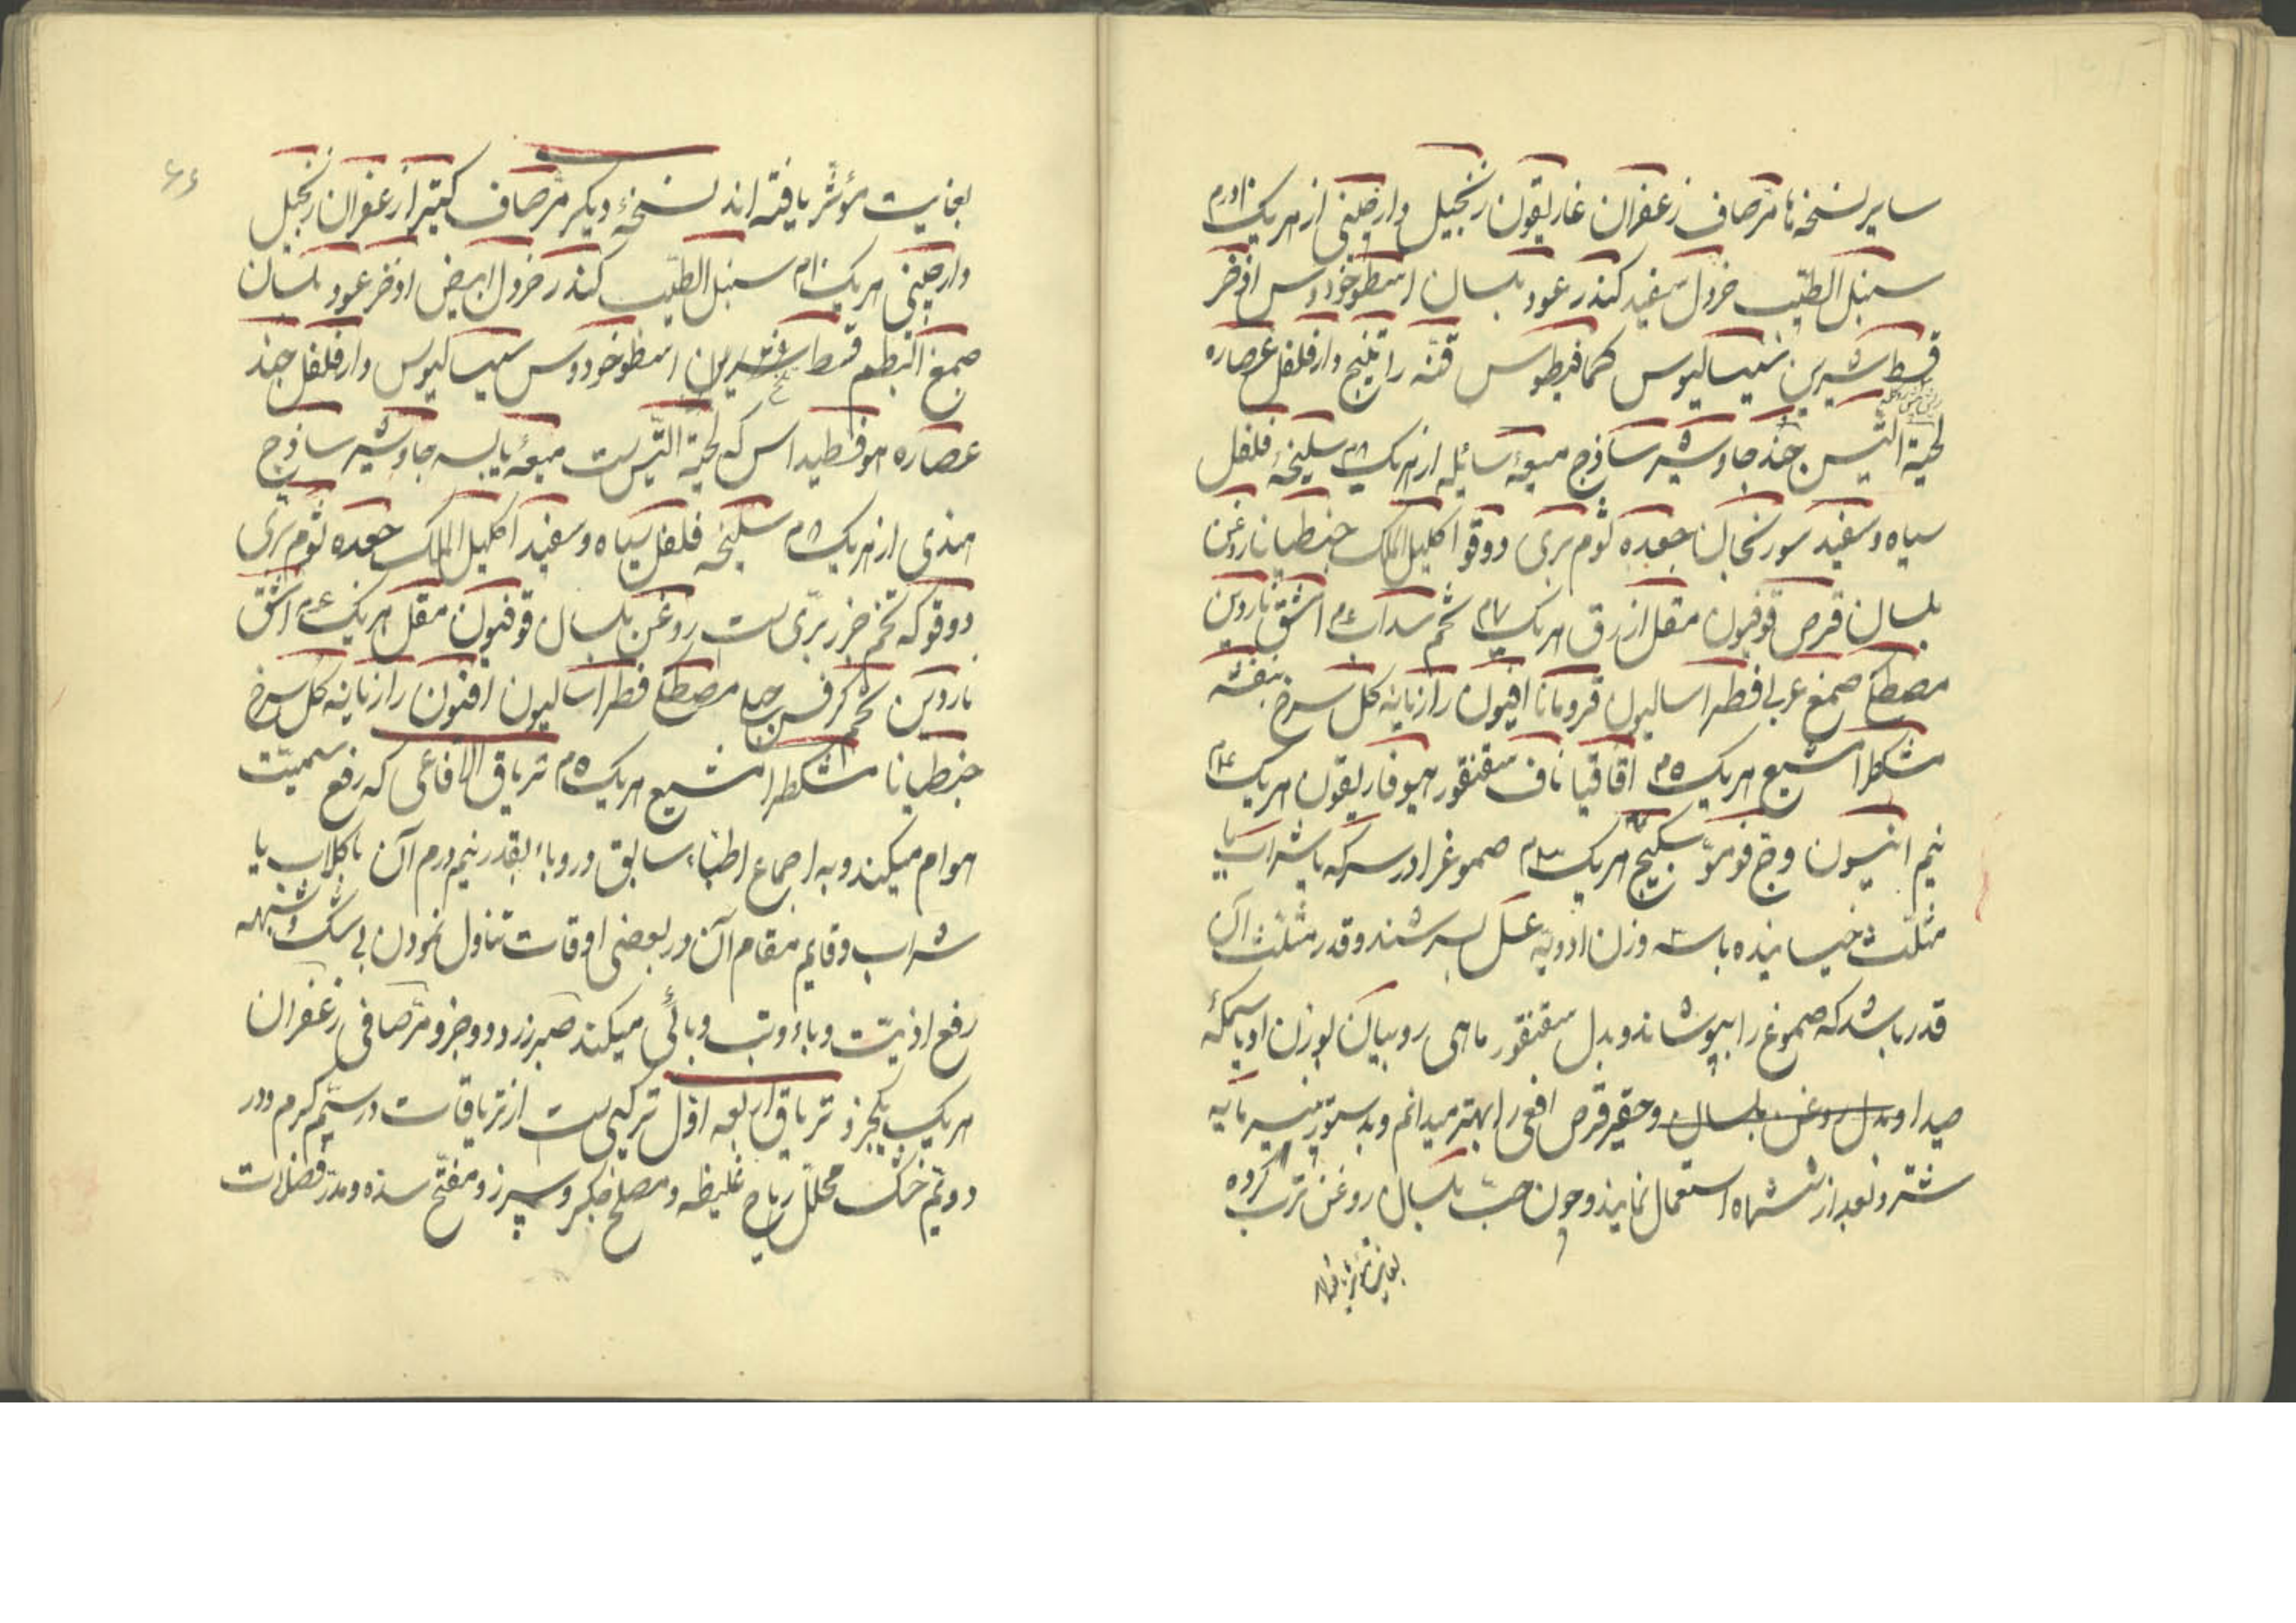 سایر نسخه‌ها مرّ صاف زعفران غاریقون زنجبیل دارچینی از هریک ۱۰ درم
سنبل الطیب خردل سفید کندر عود بلسان اسطوخودوس اذخر
قسط شیرین سیسالیوس کمافیطوس قنّه راتینج دارفلفل عصاره
لحیة التیس جند جاوشیر ساذج میعهٔ سائله از هریک ۸م سلیخه فلفل
سیاه و سفید سورنجان جعده ثوم بری دوقو اکلیل الملک جنطیانا روغن
بلسان قرص قوفیون مقل ازرق هریک ۷م تخم سداب ۶م اشق ناردین
مصطکی صمغ عربی فطراسالیون قردمانا افیون رازیانه گل سرخ بنفشه
مشکطرامشیع هریک ۵م اقاقیا ناف سقنقور هیوفاریقون هریک ۴م
نیم انیسون وج فو مو سکبینج هریک ۳م صموغ را در سرکه یا شراب یا
مثلّث خیسانیده با سه وزن ادویه عسل بسرشند و قدر مثلّث آن
قدر باشد که صموغ را بپوشاند و بدل سقنقور ماهی روبیان بوزن او یا سمکهٔ
صیدا و بدل روغن بلسان و حقیر قرص افعی را بهتر میدانم و بدستور پنیر مایه
شتر و بعد از ششماه استعمال نمایند و چون حبّ بلسان و روغن ترب کرده
بغایت مؤثر یافته‌اند
۶۶
بغایت مؤثر یافته‌اند نسخهٔ دیگر مرّ صاف کتیرا زعفران زنجبیل
دارچینی هریک ۱۰م سنبل الطیب کندر خردل ابیض اذخر عود بلسان
صمغ البطم قسط اسطوخودوس سیسالیوس دارفلفل جند
عصاره هوفسطیداس که لحیة التیس ست میعهٔ یابسه جاوشیر ساذج
هندی از هریک ۸م سلیخه فلفل سیاه و سفید اکلیل الملک جعده ثوم بری
دوقو که تخم جزر برّی ست روغن بلسان قوفیون مقل هریک ۷م اشق
ناردین تخم کرفس جبلی مصطکی فطراسالیون افیون رازیانه گل سرخ
جنطیانا مشکطرامشیع هریک ۵م تریاق الافاعی که رفع سمیّت
هوام میکند و به اجماع اطبّاء سابق در وباء بقدر نیم درم آن با گلاب یا
شراب و قایم مقام آن در بعضی اوقات تناول نمودن بی شک و شبهه
رفع اذیّت وباء و تب وبائی میکند صبر زرد دو جزو مرّ صافی زعفران
هریک یکجزو تریاق اربعه اوّل ترکیبی ست از تریاقات در سیّم گرم و در
دویّم خشک محلّل ریاح غلیظه و مصلح جگر و سپرز و مفتّح سده و مدرّ فضلات